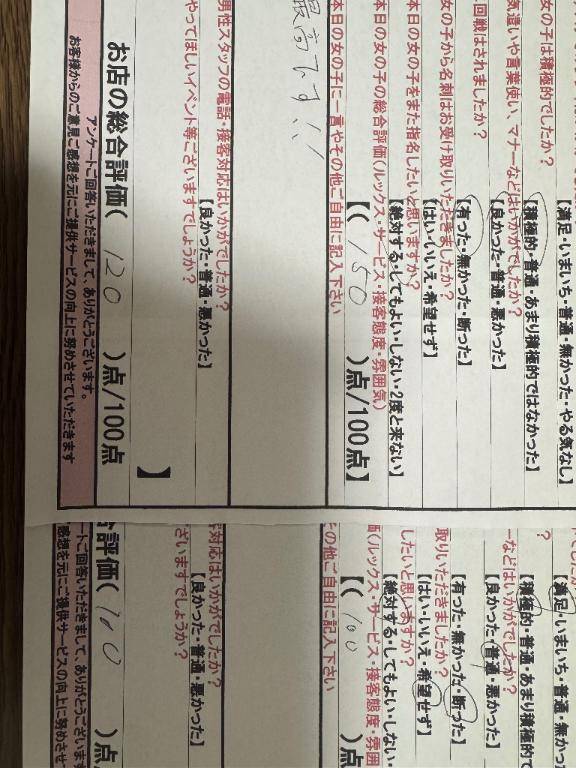 【満足・いまいち・普通・無かった・やる気なし】
女の子は積極的でしたか?
【積極的・普通・あまり積極的ではなかった】
気遣いや言葉使い、マナーなどはいかがでしたか?
【良かった・普通・悪かった】
回戦はされましたか?
【有った・無かった・断った】
女の子から名刺はお受け取りいただきましたか?
【はい・いいえ・希望せず】
本日の女の子をまた指名したいと思いますか?
【絶対する・してもよい・しない・2度と来ない】
本日の女の子の総合評価(ルックス・サービス・接客態度・雰囲気)
【( 150 )点/100点】
本日の女の子に一言やその他ご自由に記入下さい
最高です!!
男性スタッフの電話・接客対応はいかがでしたか?
【良かった・普通・悪かった】
やってほしいイベント等ございますでしょうか?
】
お店の総合評価( 120 )点/100点
アンケートご回答いただきまして、ありがとうございます。
お客様からのご意見ご感想を元にご提供サービスの向上に努めさせていただきます
【満足・いまいち・普通・無かった
?
【積極的・普通・あまり積極的で
ーなどはいかがでしたか?
【良かった・普通・悪かった】
【有った・無かった・断った】
取りいただきましたか?
【はい・いいえ・希望せず】
したいと思いますか?
【絶対する・してもよい・しない・
価(ルックス・サービス・接客態度・雰囲
【( 100 )点
の他ご自由に記入下さい
対応はいかがでしたか?
【良かった・普通・悪かった】
ざいますでしょうか?
合評価( 100 )点
ートご回答いただきまして、ありがとうございます
感想を元にご提供サービスの向上に努めさせ